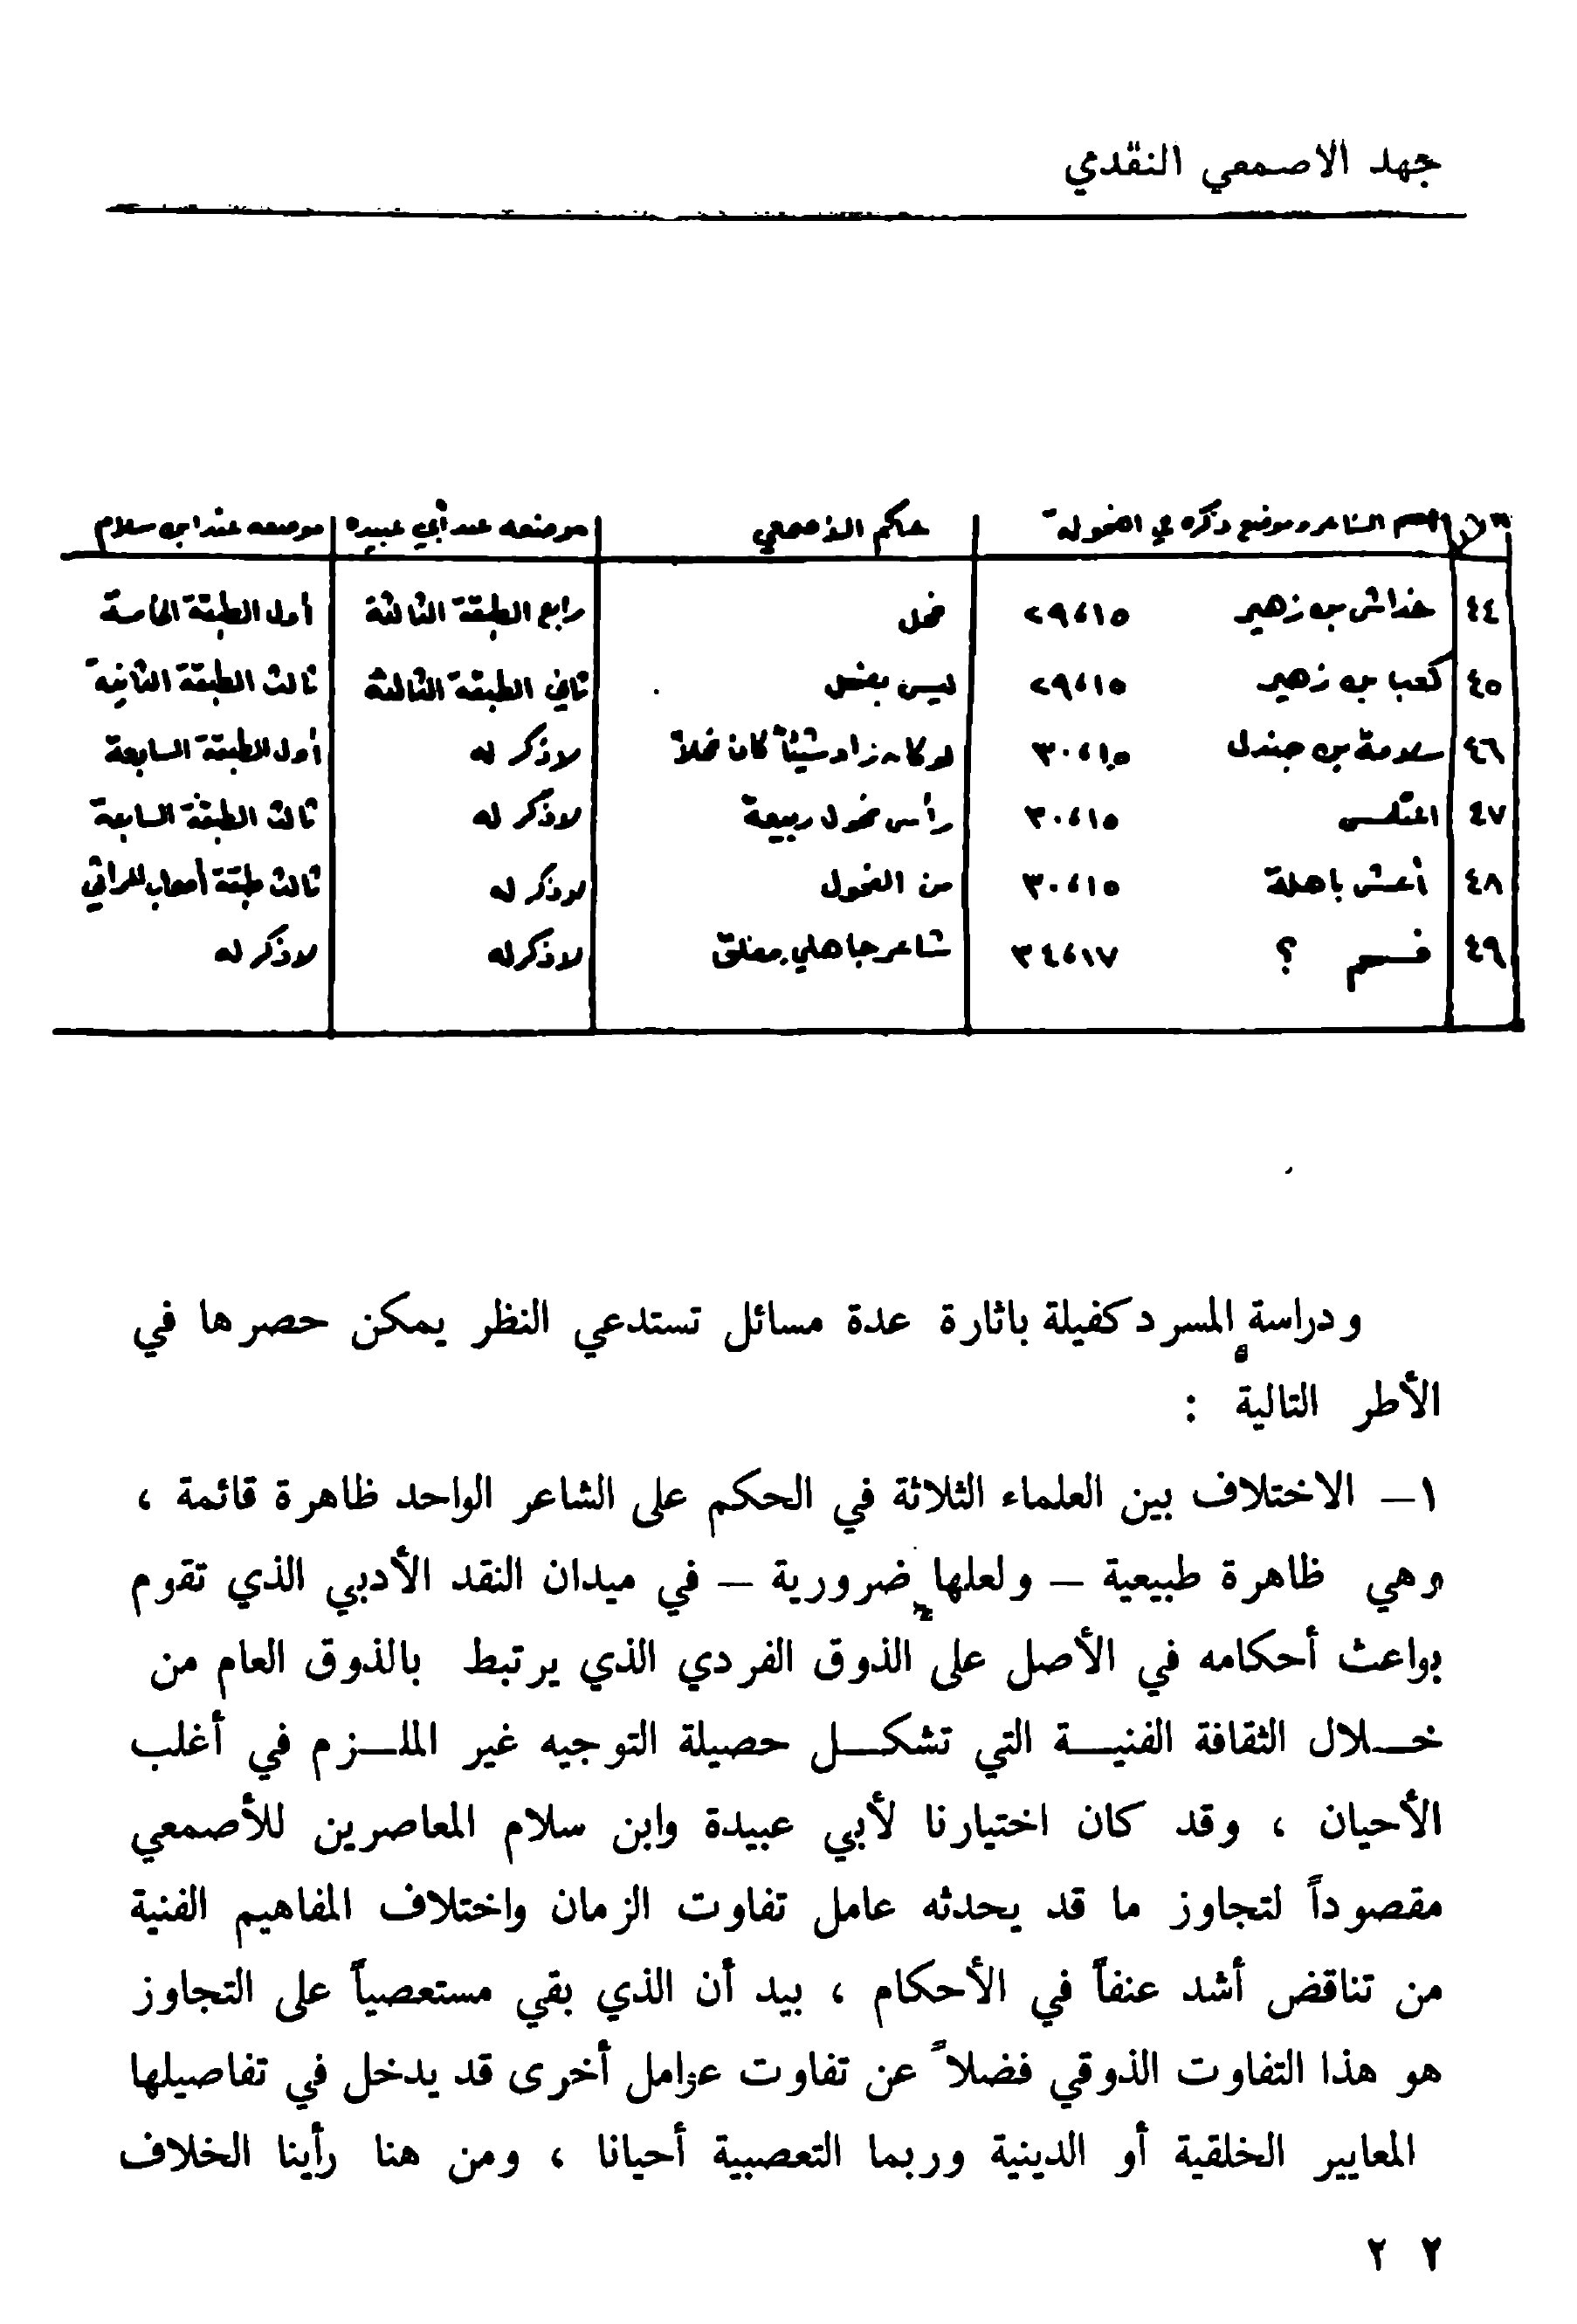 جهد الاصمعي النقدي
اسم الشاعر وموضع ذكره في الفحولة | حكم الأصمعي | موضعه عند أبي عبيدة | موضعه عند ابن سلام
٤٤ | خداش بن زهير ١٥، ٢٩ | فحل | رابع الطبقة الثالثة | أول الطبقة الخامسة
٤٥ | كعب بن زهير ١٥، ٢٩ | ليس بفحل | ثاني الطبقة الثالثة | ثالث الطبقة الثانية
٤٦ | سلامة بن جندل ١٥، ٣٠ | لو كان زاد شيئاً كان فحلاً | لا ذكر له | أول الطبقة السابعة
٤٧ | المتلمس ١٥، ٣٠ | رأس فحول ربيعة | لا ذكر له | ثالث الطبقة السابعة
٤٨ | أعشى باهلة ١٥، ٣٠ | من الفحول | لا ذكر له | ثالث طبقة أصحاب المراثي
٤٩ | قسم ؟ ١٧، ٣٤ | شاعر جاهلي مفلق | لا ذكر له | لا ذكر له
ودراسة المسرد كفيلة باثارة عدة مسائل تستدعي النظر يمكن حصرها في
الأطر التالية :
١– الاختلاف بين العلماء الثلاثة في الحكم على الشاعر الواحد ظاهرة قائمة ،
وهي ظاهرة طبيعية – ولعلها ضرورية – في ميدان النقد الأدبي الذي تقوم
بواعث أحكامه في الأصل على الذوق الفردي الذي يرتبط بالذوق العام من
خــلال الثقافة الفنيــة التي تشكــل حصيلة التوجيه غير الملــزم في أغلب
الأحيان ، وقد كان اختيارنا لأبي عبيدة وابن سلام المعاصرين للأصمعي
مقصوداً لتجاوز ما قد يحدثه عامل تفاوت الزمان واختلاف المفاهيم الفنية
من تناقض أشد عنفاً في الأحكام ، بيد أن الذي بقي مستعصياً على التجاوز
هو هذا التفاوت الذوقي فضلاً عن تفاوت عوامل أخرى قد يدخل في تفاصيلها
المعايير الخلقية أو الدينية وربما التعصبية أحيانا ، ومن هنا رأينا الخلاف
٢ ٢